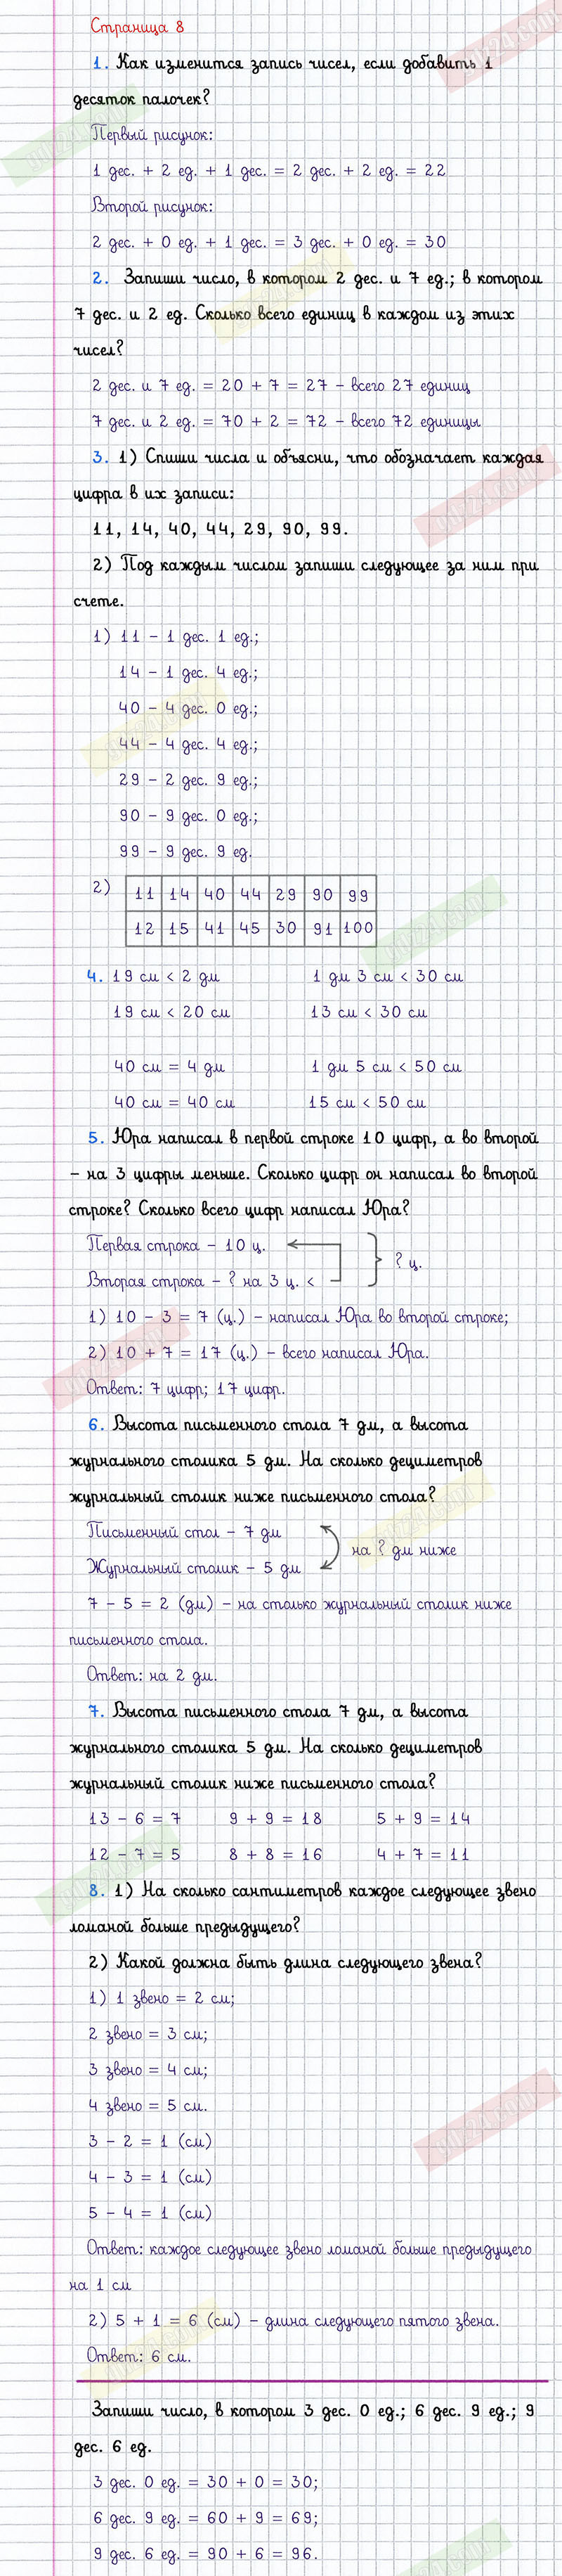 Страница 8
1. Как изменится запись чисел, если добавить 1
десяток палочек?
Первый рисунок:
1 дес. + 2 ед. + 1 дес. = 2 дес. + 2 ед. = 22
Второй рисунок:
2 дес. + 0 ед. + 1 дес. = 3 дес. + 0 ед. = 30
2. Запиши число, в котором 2 дес. и 7 ед.; в котором
7 дес. и 2 ед. Сколько всего единиц в каждом из этих
чисел?
2 дес. и 7 ед. = 20 + 7 = 27 – всего 27 единиц
7 дес. и 2 ед. = 70 + 2 = 72 – всего 72 единицы
3. 1) Спиши числа и объясни, что обозначает каждая
цифра в их записи:
11, 14, 40, 44, 29, 90, 99.
2) Под каждым числом запиши следующее за ним при
счете.
1) 11 – 1 дес. 1 ед.;
14 – 1 дес. 4 ед.;
40 – 4 дес. 0 ед.;
44 – 4 дес. 4 ед.;
29 – 2 дес. 9 ед.;
90 – 9 дес. 0 ед.;
99 – 9 дес. 9 ед.
2) 11 14 40 44 29 90 99
12 15 41 45 30 91 100
4. 19 см < 2 дм 1 дм 3 см < 30 см
19 см < 20 см 13 см < 30 см
40 см = 4 дм 1 дм 5 см < 50 см
40 см = 40 см 15 см < 50 см
5. Юра написал в первой строке 10 цифр, а во второй
– на 3 цифры меньше. Сколько цифр он написал во второй
строке? Сколько всего цифр написал Юра?
Первая строка – 10 ц.
? ц.
Вторая строка – ? на 3 ц. <
1) 10 – 3 = 7 (ц.) – написал Юра во второй строке;
2) 10 + 7 = 17 (ц.) – всего написал Юра.
Ответ: 7 цифр; 17 цифр.
6. Высота письменного стола 7 дм, а высота
журнального столика 5 дм. На сколько дециметров
журнальный столик ниже письменного стола?
Письменный стол – 7 дм
на ? дм ниже
Журнальный столик – 5 дм
7 – 5 = 2 (дм) – на столько журнальный столик ниже
письменного стола.
Ответ: на 2 дм.
7. Высота письменного стола 7 дм, а высота
журнального столика 5 дм. На сколько дециметров
журнальный столик ниже письменного стола?
13 – 6 = 7 9 + 9 = 18 5 + 9 = 14
12 – 7 = 5 8 + 8 = 16 4 + 7 = 11
8. 1) На сколько сантиметров каждое следующее звено
ломаной больше предыдущего?
2) Какой должна быть длина следующего звена?
1) 1 звено = 2 см;
2 звено = 3 см;
3 звено = 4 см;
4 звено = 5 см.
3 – 2 = 1 (см)
4 – 3 = 1 (см)
5 – 4 = 1 (см)
Ответ: каждое следующее звено ломаной больше предыдущего
на 1 см
2) 5 + 1 = 6 (см) – длина следующего пятого звена.
Ответ: 6 см.
Запиши число, в котором 3 дес. 0 ед.; 6 дес. 9 ед.; 9
дес. 6 ед.
3 дес. 0 ед. = 30 + 0 = 30;
6 дес. 9 ед. = 60 + 9 = 69;
9 дес. 6 ед. = 90 + 6 = 96.